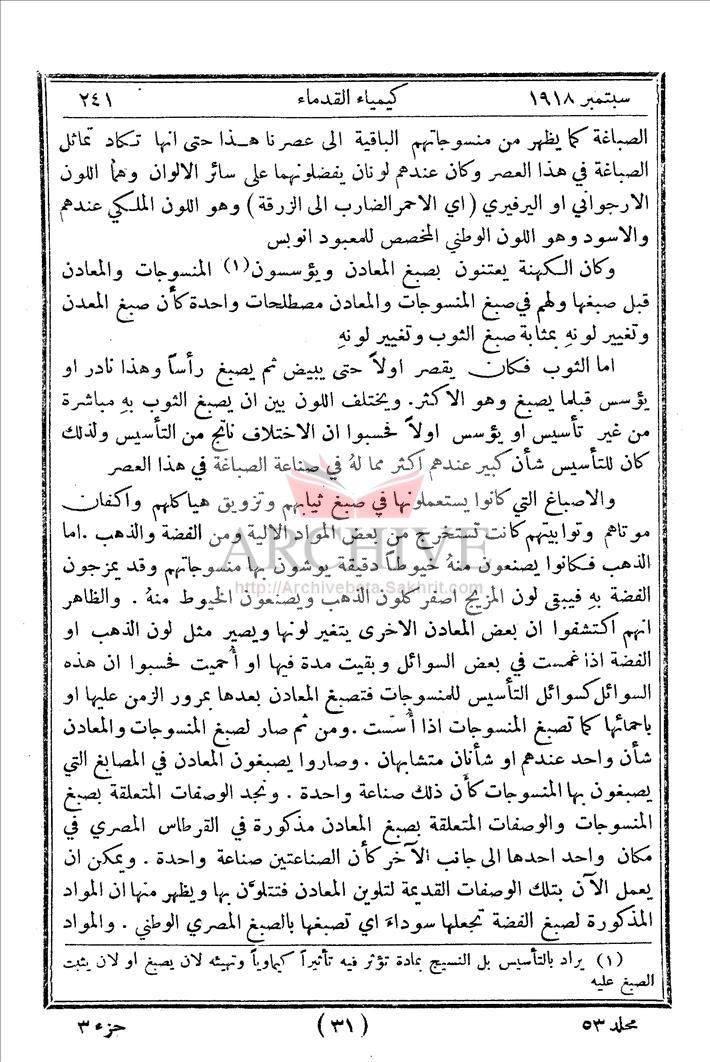 سبتمبر ١٩١٨ كيمياء القدماء ٢٤١
الصباغة كما يظهر من منسوجاتهم الباقية الى عصرنا هـذا حتى انها تكاد تماثل
الصباغة في هذا العصر وكان عندهم لونان يفضلونهما على سائر الالوان وهما اللون
الارجواني او اليرفيري (اي الاحمر الضارب الى الزرقة) وهو اللون الملكي عندهم
والاسود وهو اللون الوطني المخصص للمعبود انوبس
وكان الكهنة يعتنون بصبغ المعادن ويؤسسون(١) المنسوجات والمعادن
قبل صبغها ولهم في صبغ المنسوجات والمعادن مصطلحات واحدة كأن صبغ المعدن
وتغيير لونهِ بمثابة صبغ الثوب وتغيير لونهِ
اما الثوب فكان يقصر اولاً حتى يبيض ثم يصبغ رأساً وهذا نادر او
يؤسس قبلما يصبغ وهو الاكثر. ويختلف اللون بين ان يصبغ الثوب بهِ مباشرة
من غير تأسيس او يؤسس اولاً فحسبوا ان الاختلاف ناتج من التأسيس ولذلك
كان للتأسيس شأن كبير عندهم اكثر مما لهُ في صناعة الصباغة في هذا العصر
والاصباغ التي كانوا يستعملونها في صبغ ثيابهم وتزويق هياكلهم واكفان
موتاهم وتوابيتهم كانت تستخرج من بعض المواد الالية ومن الفضة والذهب. اما
ARCHIVE
الذهب فكانوا يصنعون منهُ خيوطاً دقيقة يوشون بها منسوجاتهم وقد يمزجون
http://Archivebeta.Sakhrit.com
الفضة بهِ فيبقى لون المزيج اصفر كلون الذهب ويصنعون الخيوط منهُ. والظاهر
انهم اكتشفوا ان بعض المعادن الاخرى يتغير لونها ويصير مثل لون الذهب او
الفضة اذا غمست في بعض السوائل وبقيت مدة فيها او أُحميت فحسبوا ان هذه
السوائل كسوائل التأسيس للمنسوجات فتصبغ المعادن بعدها بمرور الزمن عليها او
باحمائها كما تصبغ المنسوجات اذا أُسّست. ومن ثم صار لصبغ المنسوجات والمعادن
شأن واحد عندهم او شأنان متشابهان. وصاروا يصبغون المعادن في المصابغ التي
يصبغون بها المنسوجات كأن ذلك صناعة واحدة. ونجد الوصفات المتعلقة بصبغ
المنسوجات والوصفات المتعلقة بصبغ المعادن مذكورة في القرطاس المصري في
مكان واحد احدها الى جانب الآخر كأن الصناعتين صناعة واحدة. ويمكن ان
يعمل الآن بتلك الوصفات القديمة لتلوين المعادن فتتلوَّن بها ويظهر منها ان المواد
المذكورة لصبغ الفضة تجعلها سوداء اي تصبغها بالصبغ المصري الوطني. والمواد
(١) يراد بالتأسيس بل النسيج بمادة تؤثر فيه تأثيراً كيماوياً وتهيئه لان يصبغ او لان يثبت
الصبغ عليه
مجلد ٥٣ (٣١) جزء ٣